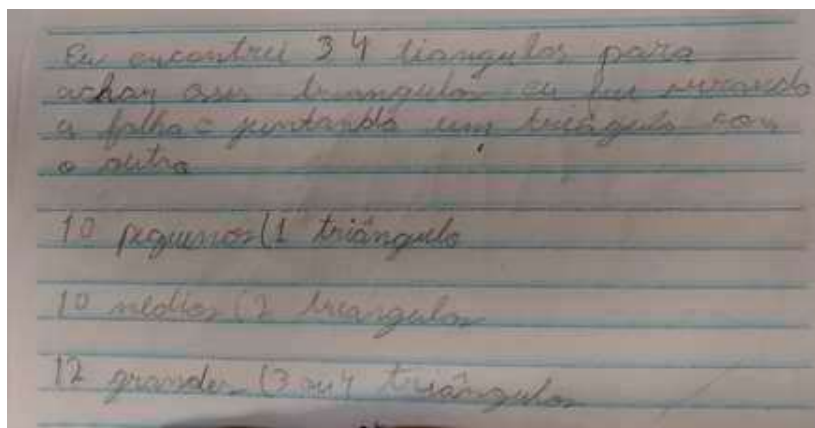 Eu encontrei 34 tiangulos para
achar esses triangulos eu fui virando
a folha e juntando um triângulo com
o outro
10 pequenos (1 triângulo
10 médios (2 triangulos
12 grandes (3 ou 4 triângulos